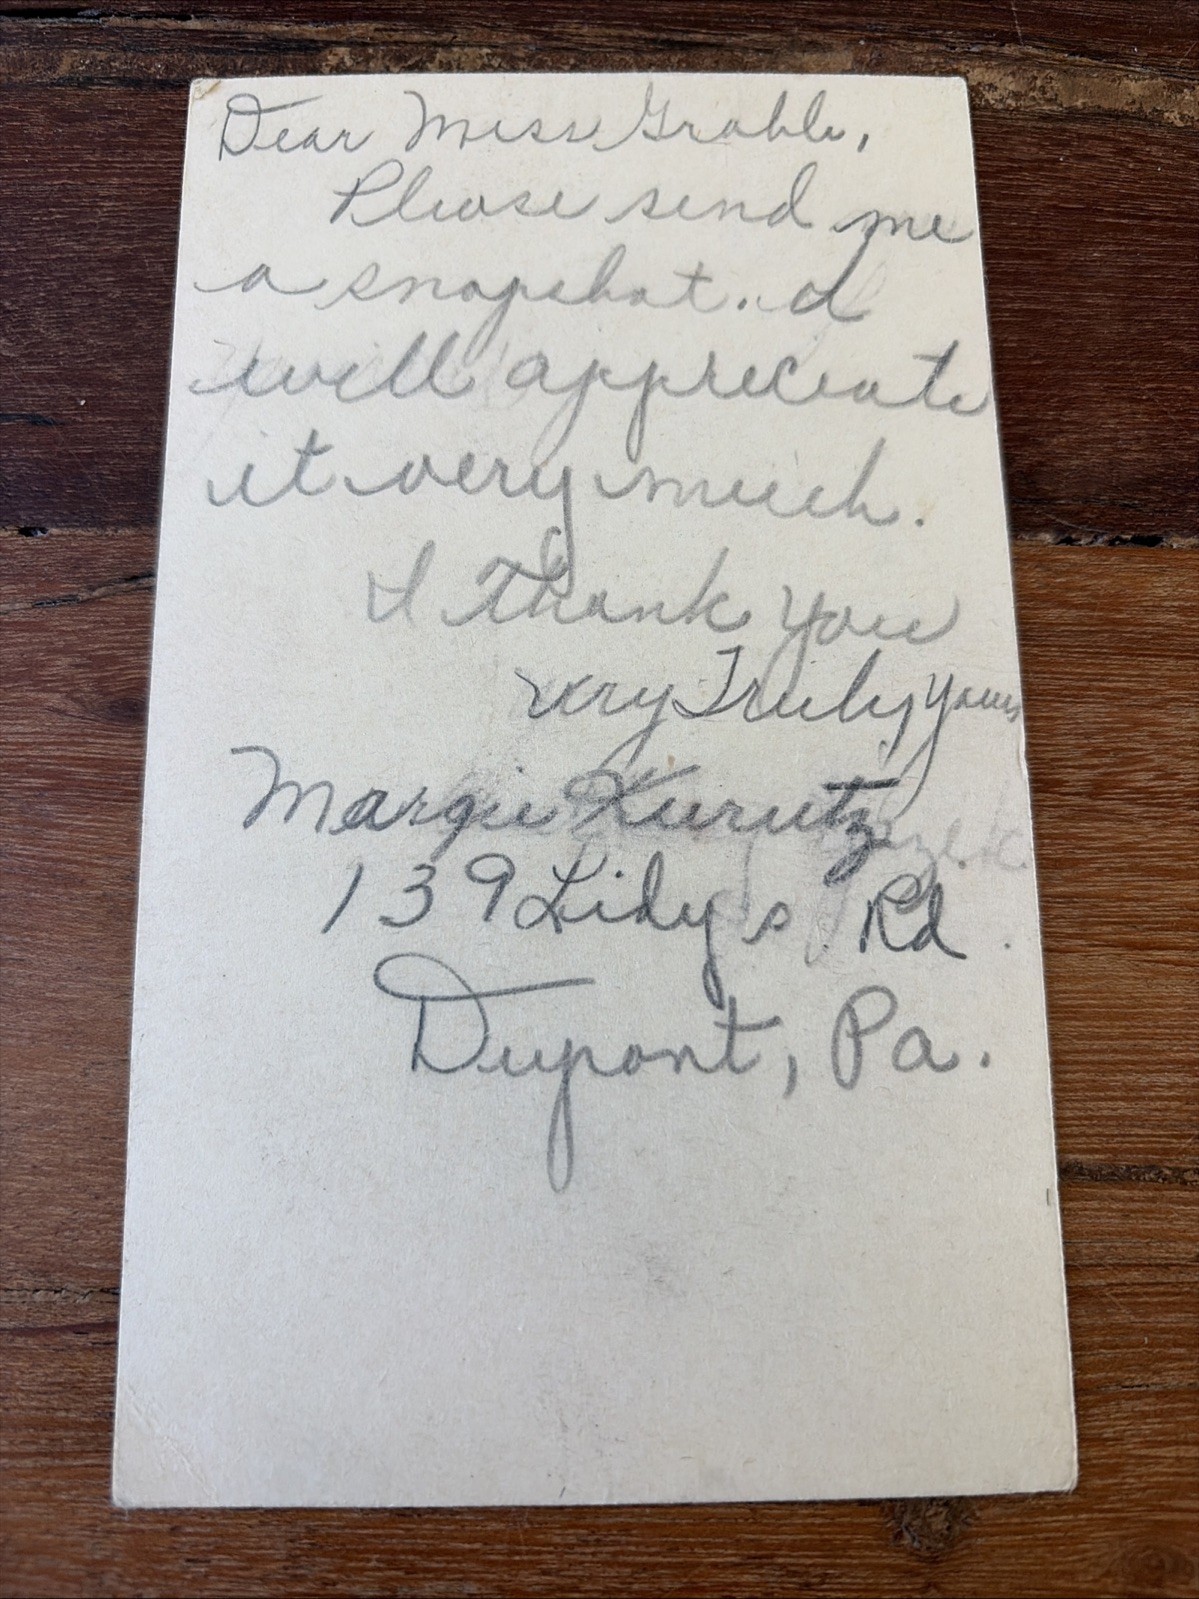 Dear Miss Grable,
Please send me
a snapshot. I
will appreciate
it very much.
I Thank you
very Truly yours
Margie Kurutz
139 Lidy's Rd.
Dupont, Pa.